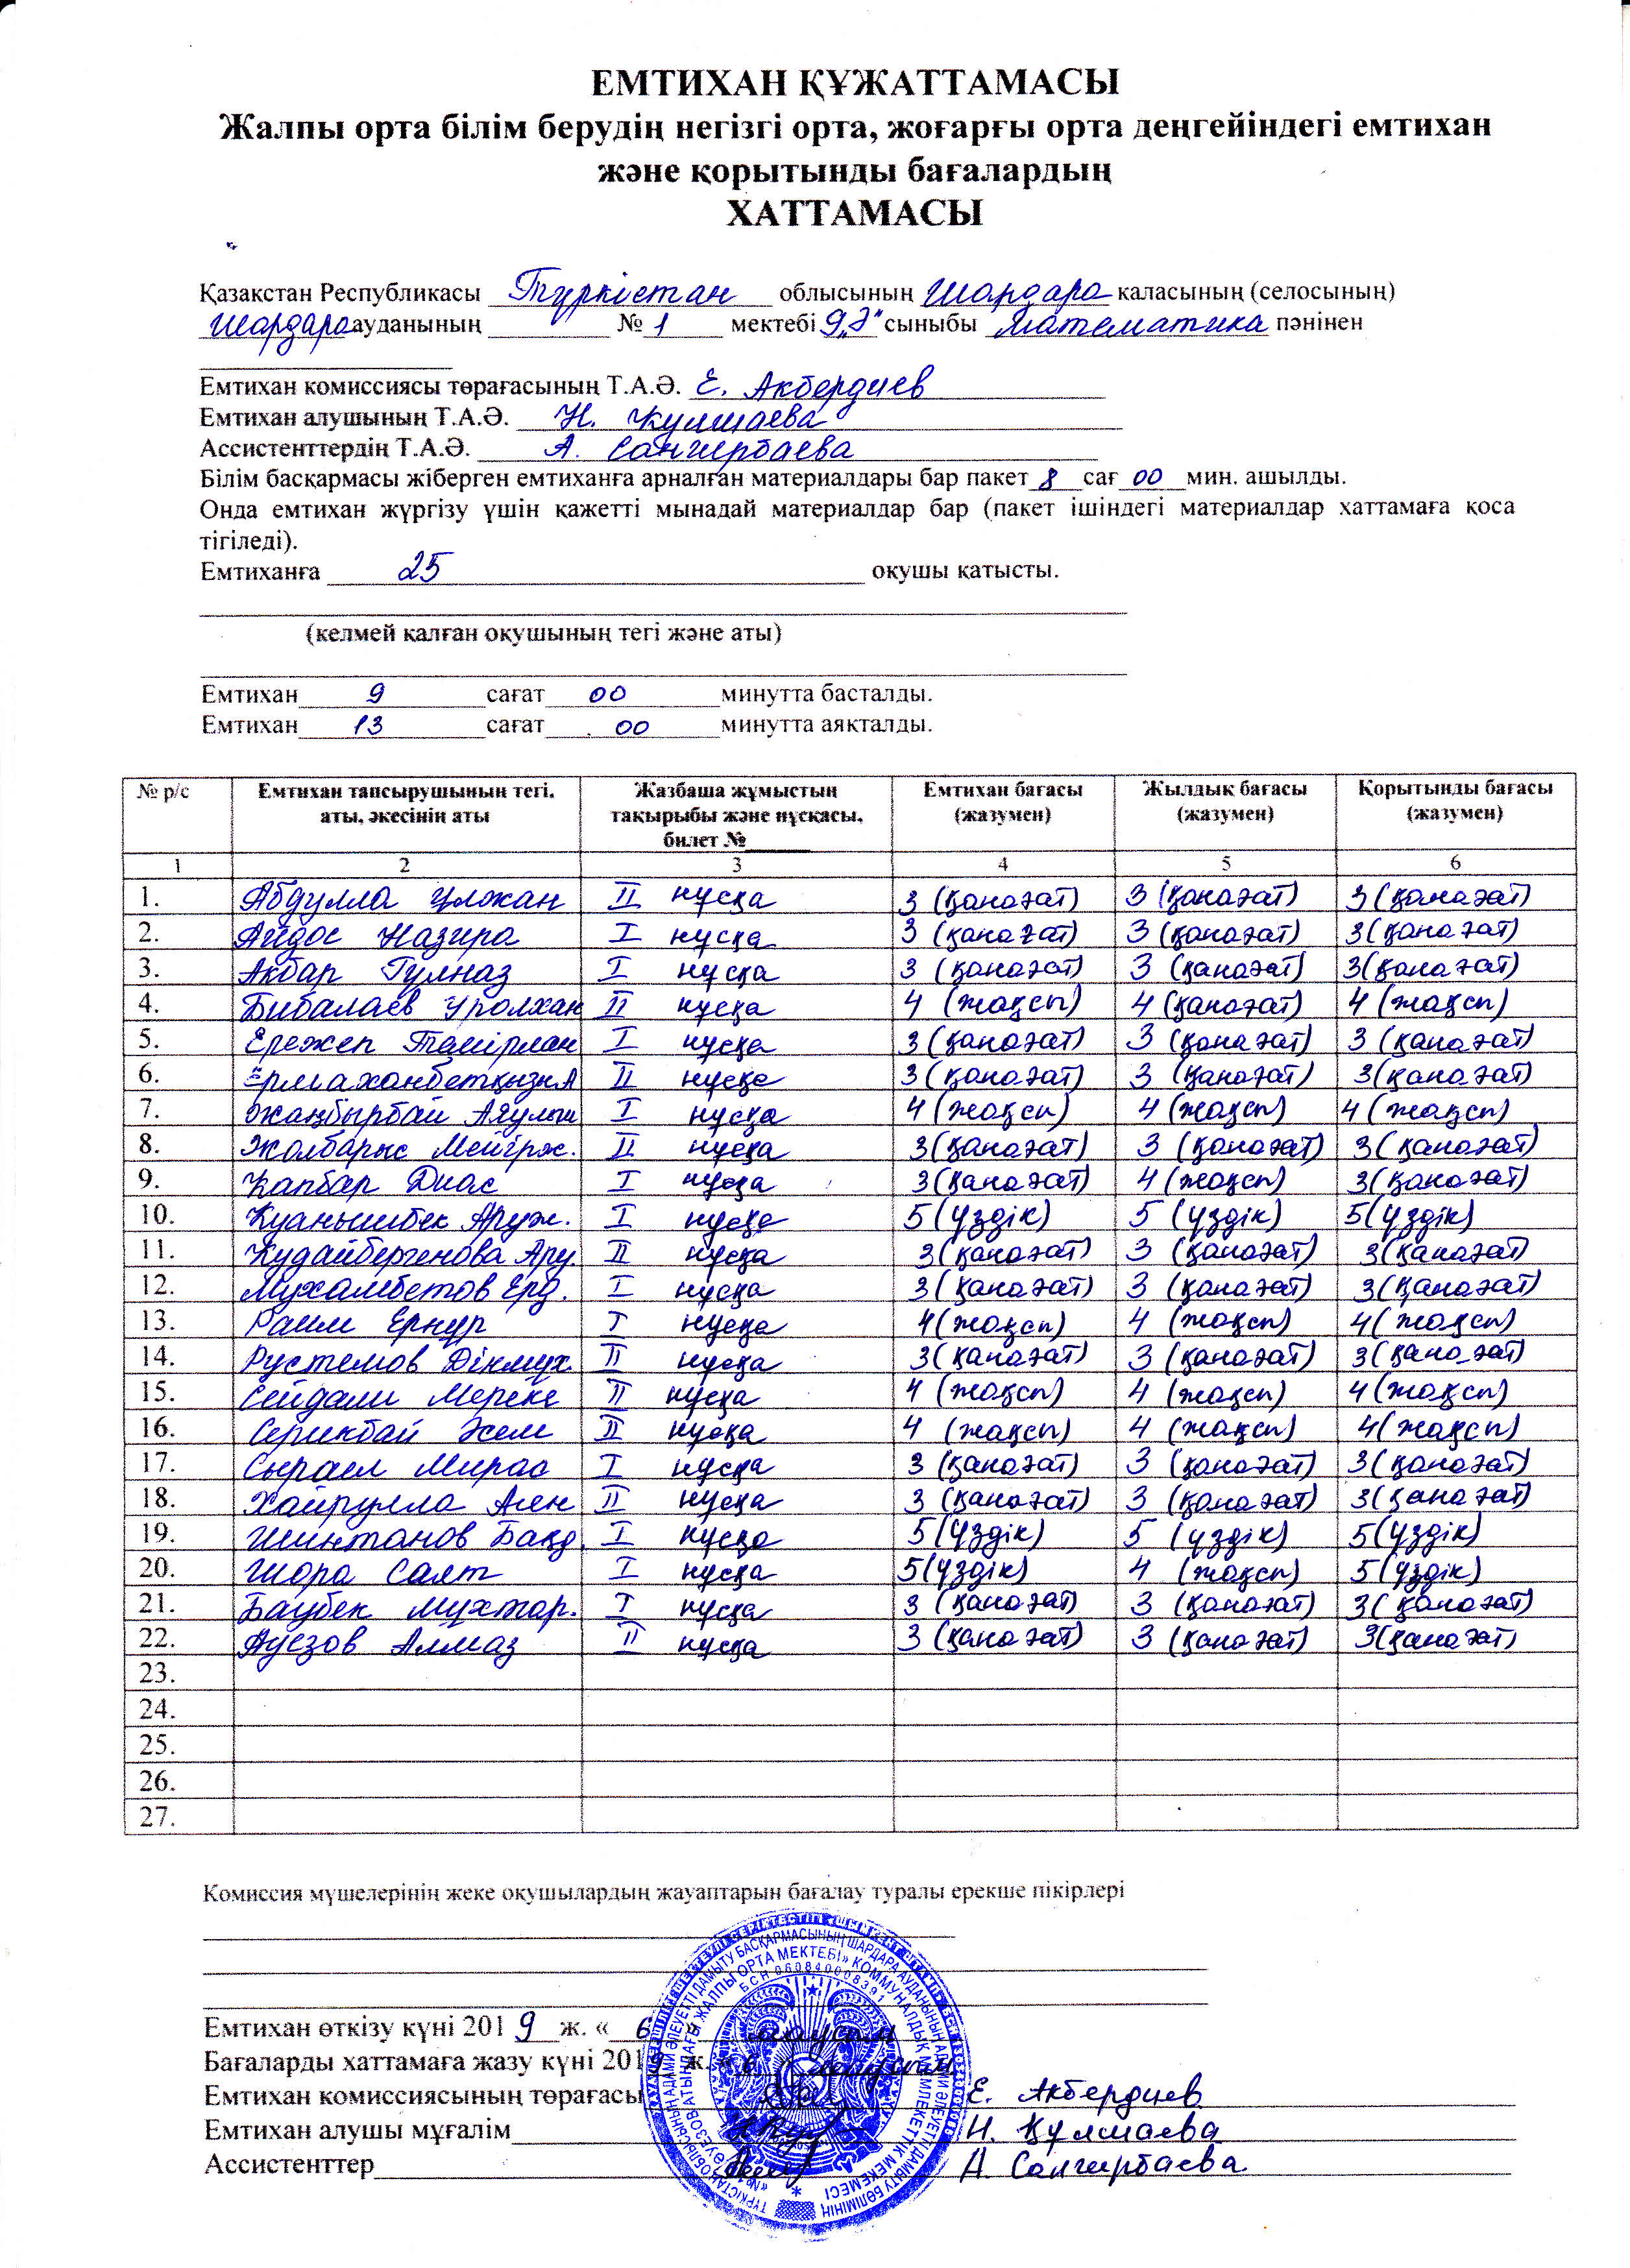 ЕМТИХАН ҚҰЖАТТАМАСЫ
Жалпы орта білім берудің негізгі орта, жоғарғы орта деңгейіндегі емтихан
және қорытынды бағалардың
ХАТТАМАСЫ
Қазақстан Республикасы Түркістан облысының Шардара қаласының (селосының)
Шардара ауданының № 1 мектебі 9 „Ә" сыныбы Математика пәнінен
Емтихан комиссиясы төрағасының Т.А.Ә. Е. Акбердиев
Емтихан алушының Т.А.Ә. Н. Кулшаева
Ассистенттердің Т.А.Ә. А. Сангирбаева
Білім басқармасы жіберген емтиханға арналған материалдары бар пакет 8 сағ 00 мин. ашылды.
Онда емтихан жүргізу үшін қажетті мынадай материалдар бар (пакет ішіндегі материалдар хаттамаға қоса
тігіледі).
Емтиханға 25 оқушы қатысты.
(келмей қалған оқушының тегі және аты)
Емтихан 9 сағат 00 минутта басталды.
Емтихан 13 сағат 00 минутта аяқталды.
№ р/с Емтихан тапсырушының тегі, аты, әкесінің аты Жазбаша жұмыстың тақырыбы және нұсқасы, билет № Емтихан бағасы (жазумен) Жылдық бағасы (жазумен) Қорытынды бағасы (жазумен)
1 2 3 4 5 6
1. Абдулла Ұлжан II нұсқа 3 (қанағат) 3 (қанағат) 3 (қанағат)
2. Айдос Назира I нұсқа 3 (қанағат) 3 (қанағат) 3 (қанағат)
3. Акбар Гулназ I нұсқа 3 (қанағат) 3 (қанағат) 3 (қанағат)
4. Бибалаев Уролхан II нұсқа 4 (жақсы) 4 (қанағат) 4 (жақсы)
5. Ережеп Темірлан I нұсқа 3 (қанағат) 3 (қанағат) 3 (қанағат)
6. Ермаханбетқызы А II нұсқа 3 (қанағат) 3 (қанағат) 3 (қанағат)
7. Жаңбырбай I нұсқа 4 (жақсы) 4 (жақсы) 4 (жақсы)
8. Жолбарыс Мейірж. II нұсқа 3 (қанағат) 3 (қанағат) 3 (қанағат)
9. Қапбар Диас I нұсқа 3 (қанағат) 4 (жақсы) 3 (қанағат)
10. Қуанышбек Аруж. I нұсқа 5 (үздік) 5 (үздік) 5 (үздік)
11. Кудайбергенова Ару. II нұсқа 3 (қанағат) 3 (қанағат) 3 (қанағат)
12. Мухамбетов Ерд. I нұсқа 3 (қанағат) 3 (қанағат) 3 (қанағат)
13. Раим Ернур I нұсқа 4 (жақсы) 4 (жақсы) 4 (жақсы)
14. Рустемов Дінмух. II нұсқа 3 (қанағат) 3 (қанағат) 3 (қанағат)
15. Сейдали Мереке II нұсқа 4 (жақсы) 4 (жақсы) 4 (жақсы)
16. Серикбай Әсем II нұсқа 4 (жақсы) 4 (жақсы) 4 (жақсы)
17. Сыраел Мирас I нұсқа 3 (қанағат) 3 (қанағат) 3 (қанағат)
18. Хайрулла II нұсқа 3 (қанағат) 3 (қанағат) 3 (қанағат)
19. Шинтанов Бақд. I нұсқа 5 (үздік) 5 (үздік) 5 (үздік)
20. Шора Саят I нұсқа 5 (үздік) 4 (жақсы) 5 (үздік)
21. Баубек Мухтар. I нұсқа 3 (қанағат) 3 (қанағат) 3 (қанағат)
22. Ауезов Алмаз II нұсқа 3 (қанағат) 3 (қанағат) 3 (қанағат)
23.
24.
25.
26.
27.
Комиссия мүшелерінің жеке оқушылардың жауаптарын бағалау туралы ерекше пікірлері
Емтихан өткізу күні 2019 ж. « 6 » маусым
Бағаларды хаттамаға жазу күні 2019 ж. « 6 » маусым
Емтихан комиссиясының төрағасы Е. Акбердиев
Емтихан алушы мұғалім Н. Құлшаева
Ассистенттер А. Сангирбаева